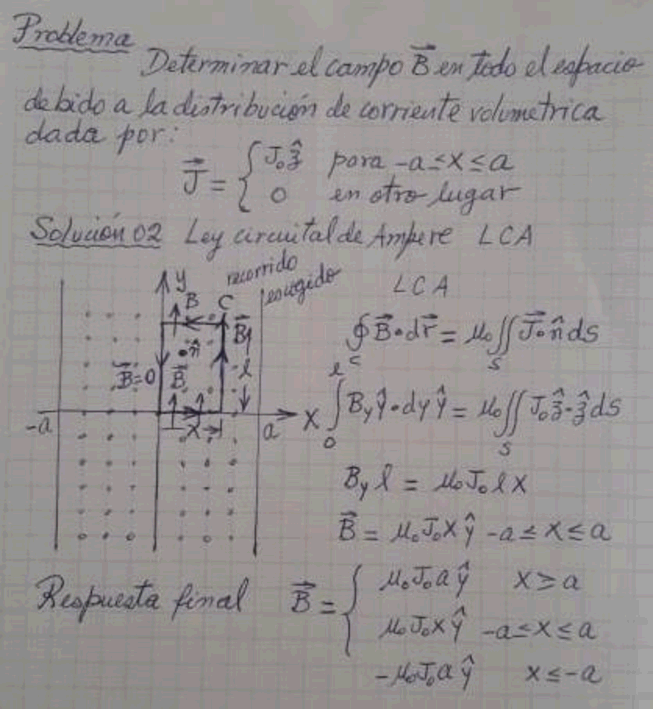 Problema
Determinar el campo B⃗ en todo el espacio
debido a la distribución de corriente volumetrica
dada por:
J⃗ = { J₀ẑ para -a≤x≤a
0 en otro lugar
Solución 02 Ley circuital de Ampere LCA
recorrido
escogido
y
B
C
B⃗
n̂
B⃗=0
B⃗
l
-a
x
a
X
LCA
∮_C B⃗•dr⃗ = μ₀∬_S J⃗•n̂ ds
∫₀^l B_y ŷ•dy ŷ = μ₀∬_S J₀ẑ•ẑ ds
B_y l = μ₀J₀lx
B⃗ = μ₀J₀xŷ -a≤x≤a
Respuesta final B⃗ = { μ₀J₀aŷ x≥a
μ₀J₀xŷ -a≤x≤a
-μ₀J₀aŷ x≤-a